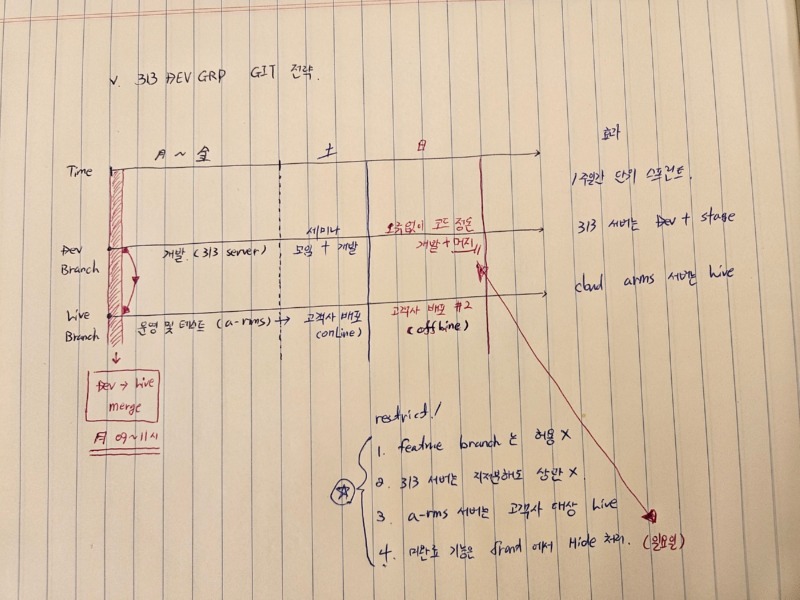 v. 313 DEV GRP GIT 전략.
효과
Time
月 ~ 金
土
日
1주일간 단위 스프린트.
Dev Branch
개발 (313 server)
세미나
모임 + 개발
오류없이 코드 정돈
개발 + 머지
313 서버는 Dev + stage
Live Branch
운영 및 테스트 (a-rms) →
고객사 배포
(online)
고객사 배포 #2
(offline)
cloud arms 서버는 Live
Dev → Live
merge
月 09~11시
restrict!
1. feature branch 는 허용 X
2. 313 서버는 지저분해도 상관 X.
3. a-rms 서버는 고객사 대상 Live
4. 미완료 기능은 front 에서 Hide 처리. (일요일)